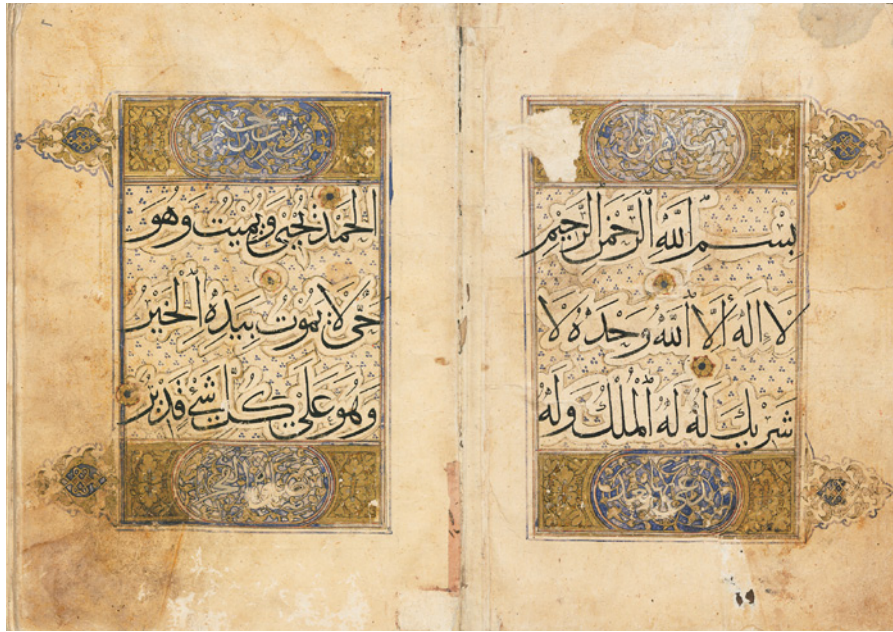 بِسْمِ اللَّهِ الرَّحْمَنِ الرَّحِيمِ
لَا إِلَهَ إِلَّا اللَّهُ وَحْدَهُ لَا
شَرِيكَ لَهُ لَهُ الْمُلْكُ وَلَهُ
الْحَمْدُ يُحْيِي وَيُمِيتُ وَهُوَ
حَيٌّ لَا يَمُوتُ بِيَدِهِ الْخَيْرُ
وَهُوَ عَلَى كُلِّ شَيْءٍ قَدِيرٌ